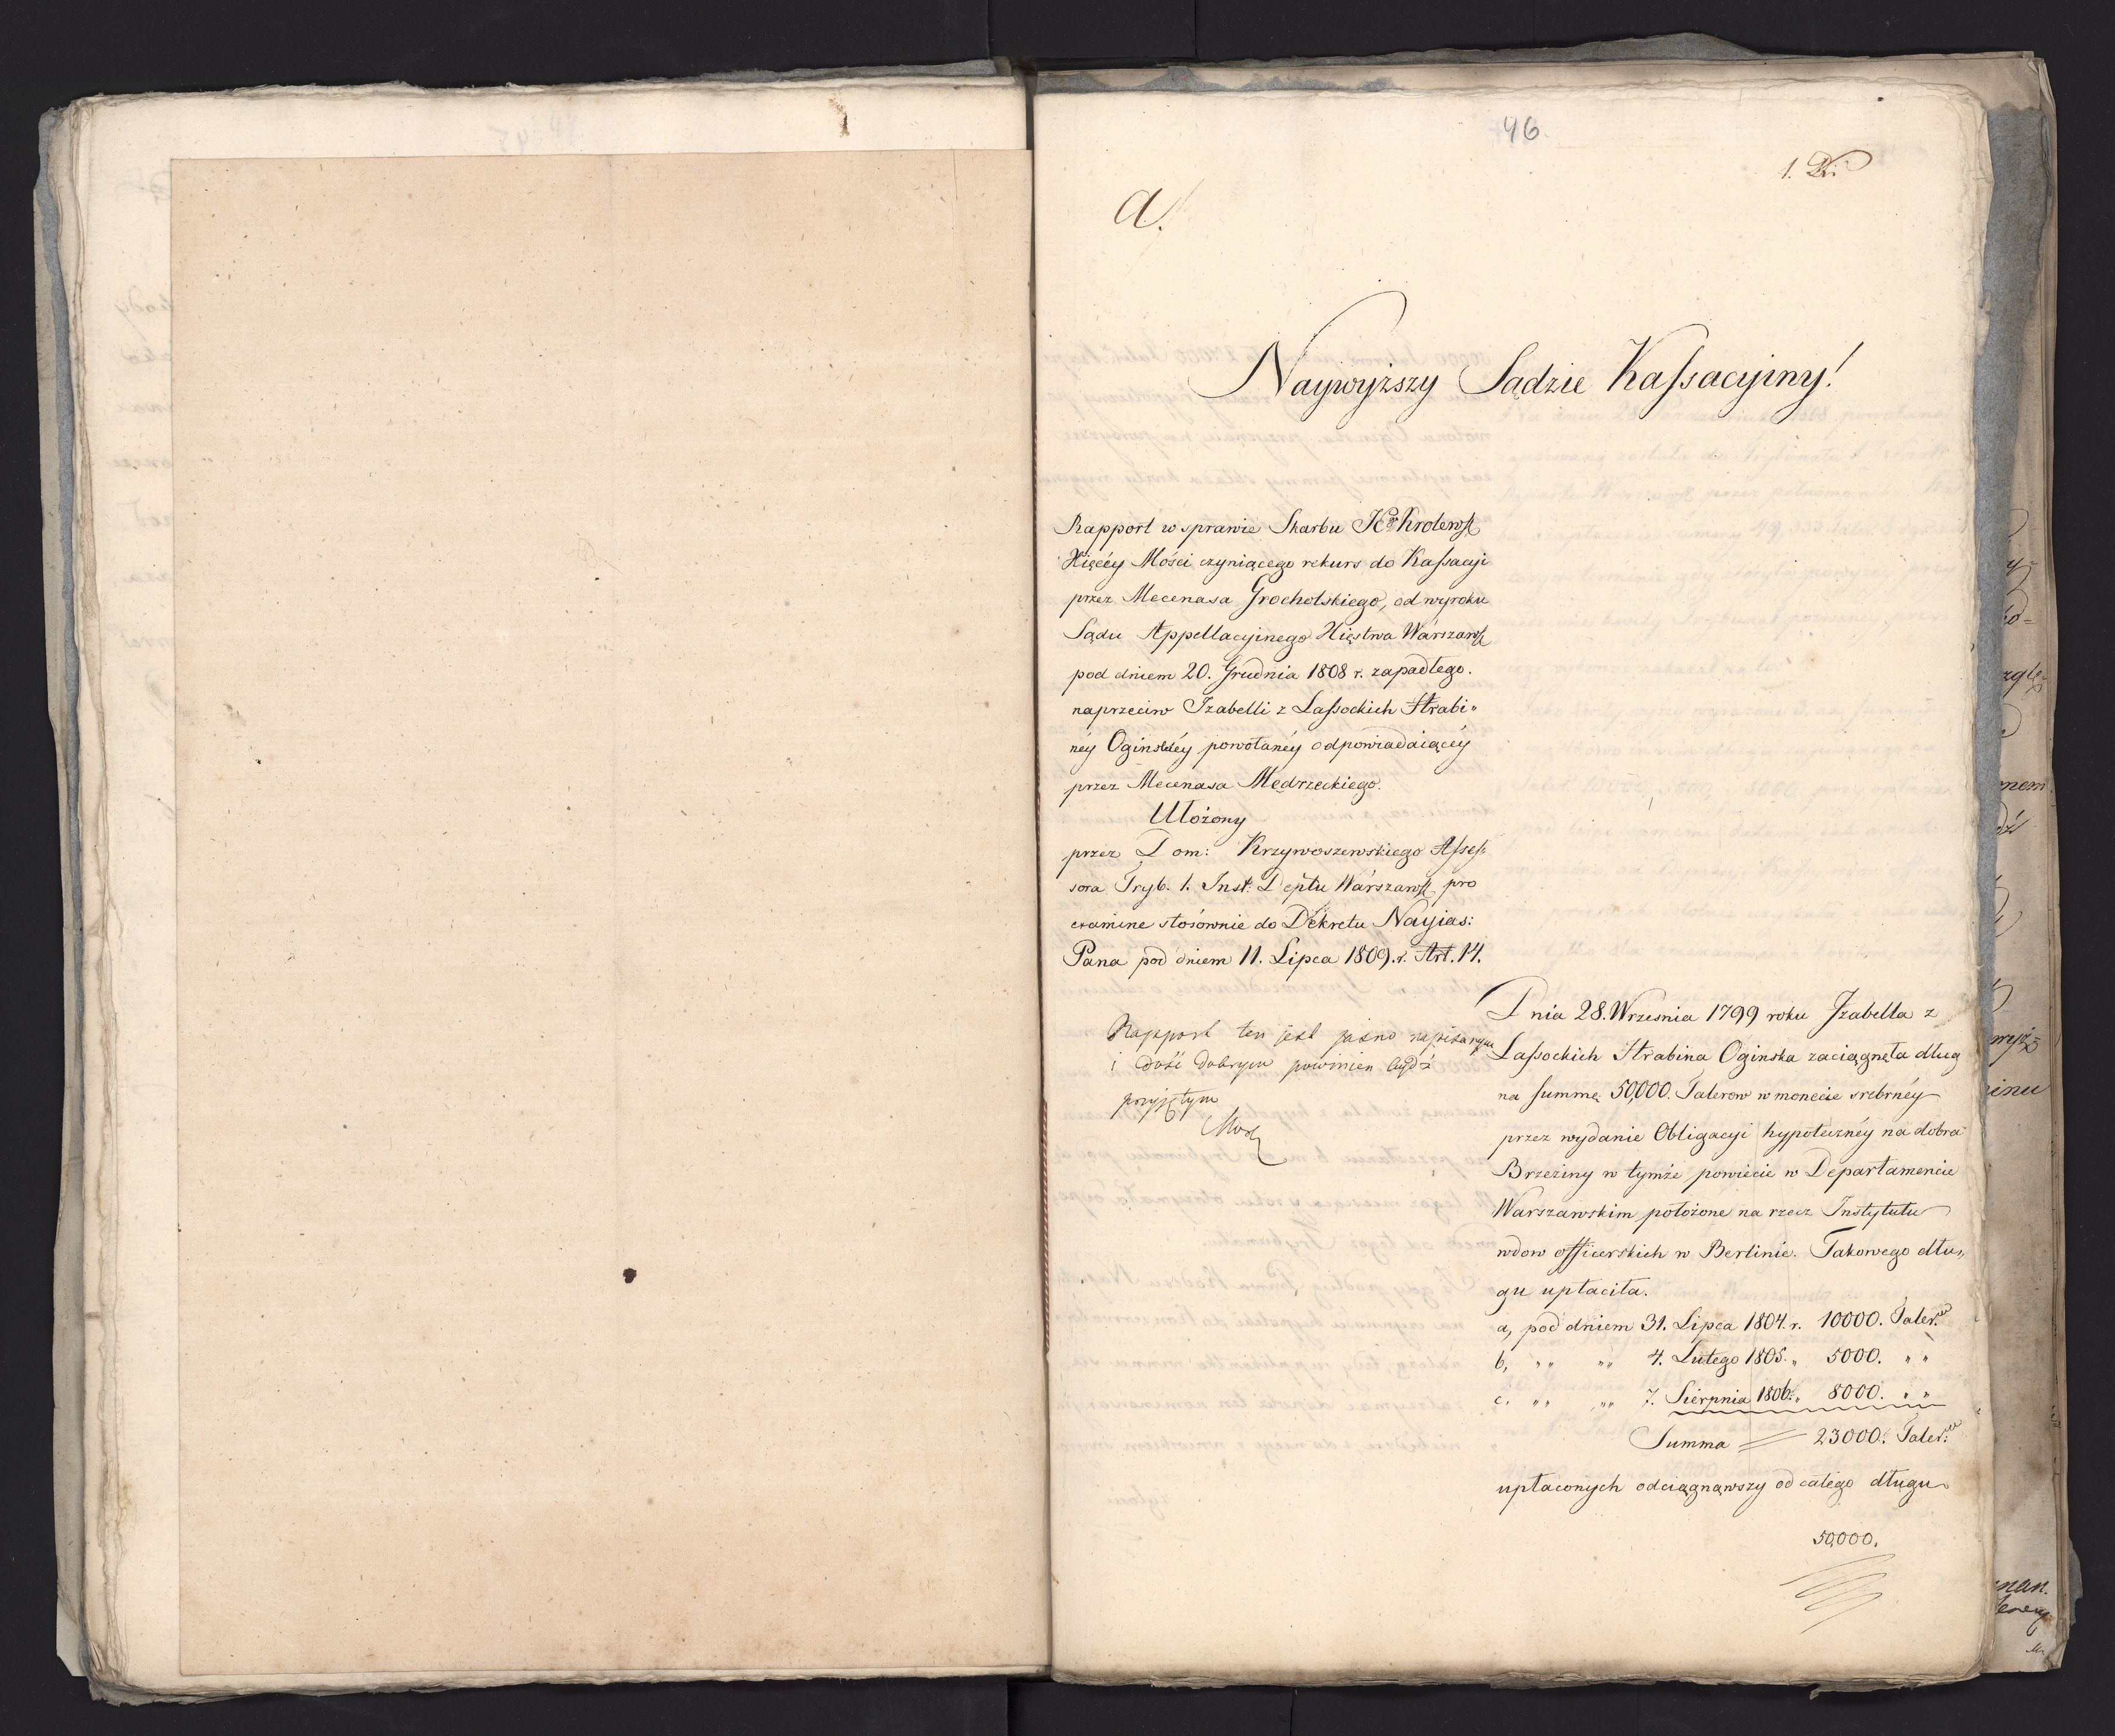 46.
a.
Naywyższy Sądzie Kassacyiny!
Rapport w sprawie Skarbu Krolewsk
Xięcéy Mości czyniącego rekurs do Kassacyi
przez Mecenasa Grocholskiego, od wyroku
Sądu Appellacyinego Xięstwa Warszawsk
pod dniem 20. Grudnia 1808 r. zapadłego.
naprzeciw Izabelli z Lassockich Hrabi„
néy Oginskiéy powołanéy odpowiadaiącéy
przez Mecenasa Mędrzeckiego.
Ułożony
przez Dom: Krzywoszewskiego Asses„
sora Tryb. 1. Inst: Deptu Warszawsk pro
examine stosównie do Dekretu Nayias:
Pana pod dniem 11. Lipca 1809. r. Art. 14.
Rapport ten jest jasno napisanym
i dość dobrym powinien bydź
przyjętym
Dnia 28. Wrzesnia 1799 roku Izabella z
Lassockich Hrabina Oginska zaciągnęła dług
na summę 50,000. Talerow w monecie srebrnéy
przez wydanie Obligacyi hypotecznéy na dobra
Brzeziny w tymże powiecie w Departamencie
Warszawskim położone na rzecz Instytutu
wdow officerskich w Berlinie. Takowego dłu„
gu upłaciła.
a, pod dniem 31. Lipca 1804. r. 10000. Taler:ow
b, „ „ „ „ 4. Lutego 1805. „ 5000. „ „
c. „ „ „ „ 7. Sierpnia 1806. „ 8000. „ „
Summa = 23000. Taler:ow
upłaconych odciągnąwszy od całego długu
50,000.